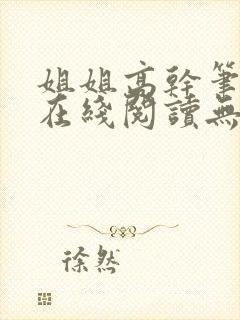 姐姐高幹筆
在綫閱讀無
徐然